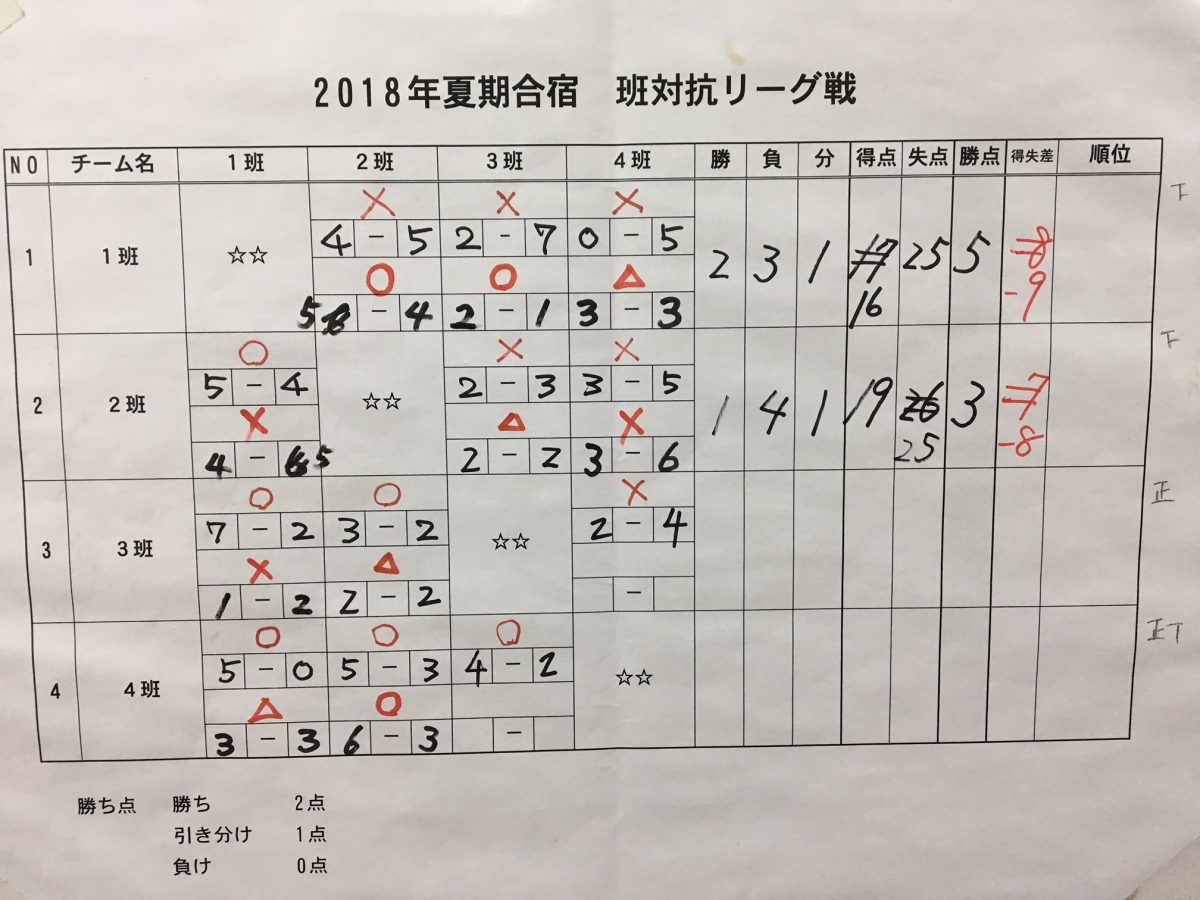 2018年夏期合宿　班対抗リーグ戦
NO チーム名 1班 2班 3班 4班 勝 負 分 得点 失点 勝点 得失差 順位
× × ×
4 － 5 2 － 7 0 － 5
1 1班 ☆☆ 2 3 1 17 25 5 -8
○ ○ △ 16 -9
5 6 － 4 2 － 1 3 － 3
下
○ × ×
5 － 4 2 － 3 3 － 5
2 2班 ☆☆ 1 4 1 19 26 3 -7
× △ × 25 -8
4 － 6 5 2 － 2 3 － 6
下
○ ○ ×
7 － 2 3 － 2 2 － 4
3 3班 ☆☆
× △
1 － 2 2 － 2 －
正
○ ○ ○
5 － 0 5 － 3 4 － 2
4 4班 ☆☆
△ ○
3 － 3 6 － 3 －
正丅
勝ち点 勝ち 2点
引き分け 1点
負け 0点